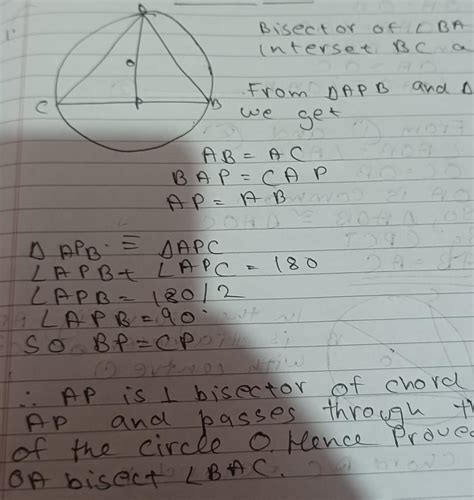 1.
A
O
C
P
B
Bisector of ∠BA
Interset BC a
From △APB and △
we get
AB = AC
BAP = CAP
AP = AB
△ APB ≡ △APC
∠APB + ∠APC = 180
∠APB = 180/2
∠APB = 90°
SO BP = CP
∴ AP is ⊥ bisector of chord
AP and passes through th
of the circle O. Hence Prove
OA bisect ∠BAC.